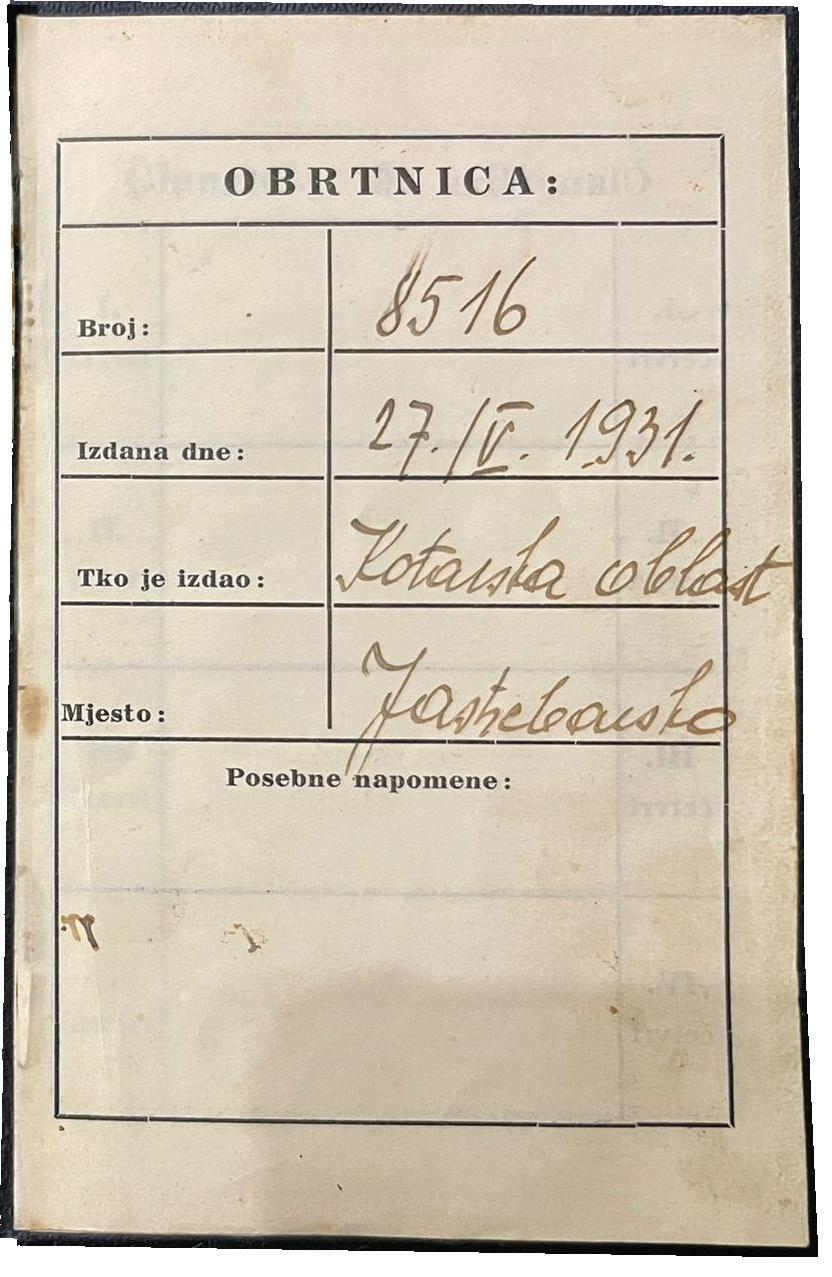 OBRTNICA:
Broj: 8516
Izdana dne: 27./V. 1931.
Tko je izdao: Kotarska oblast
Mjesto: Jastrebarsko
Posebne napomene: